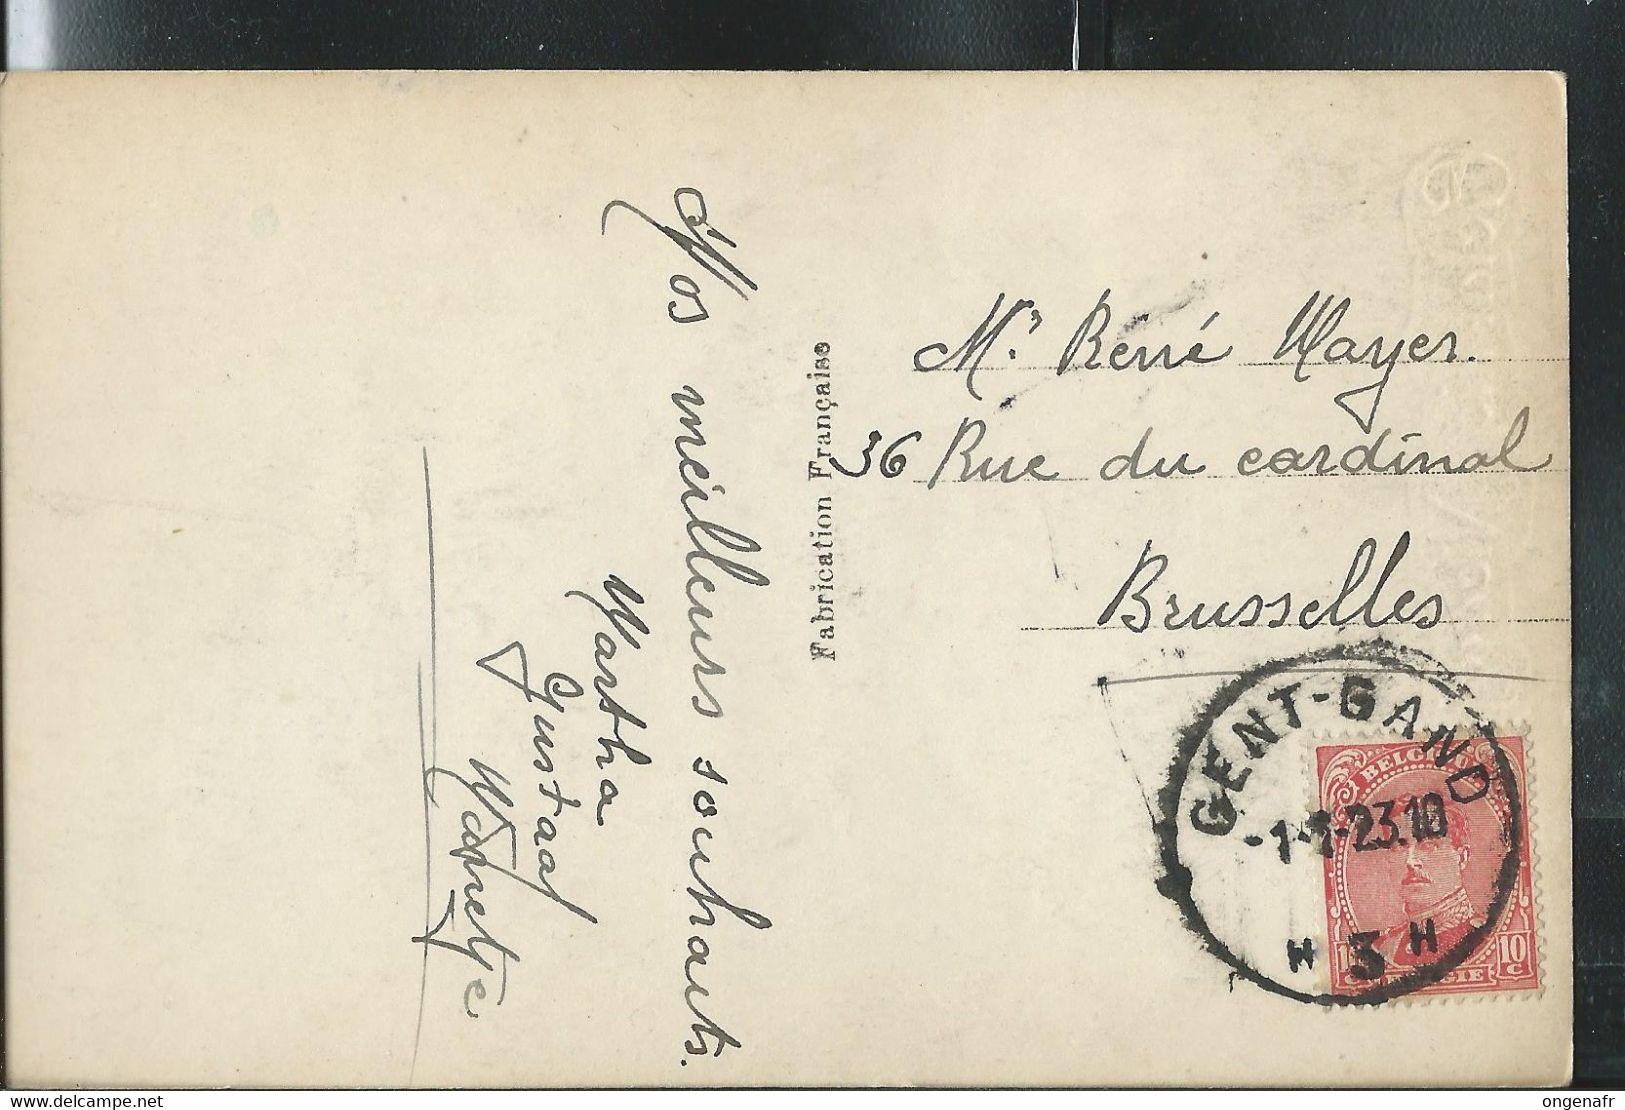 Nos meilleurs souhaits.
Martha
Gustaaf
Fabrication Française
Mr. René Mayer.
36 Rue du cardinal
Brusselles
GENT-GAND
-1-1-23.10
H 3 H
BELGIQUE
10 C
www.delcampe.net
ongenafr